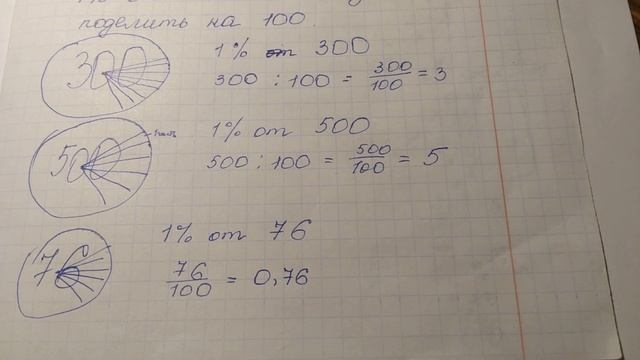 поделить на 100.
300
1% от 300
300 : 100 = 300/100 = 3
500
1% от 500
500 : 100 = 500/100 = 5
76
1% от 76
76/100 = 0,76